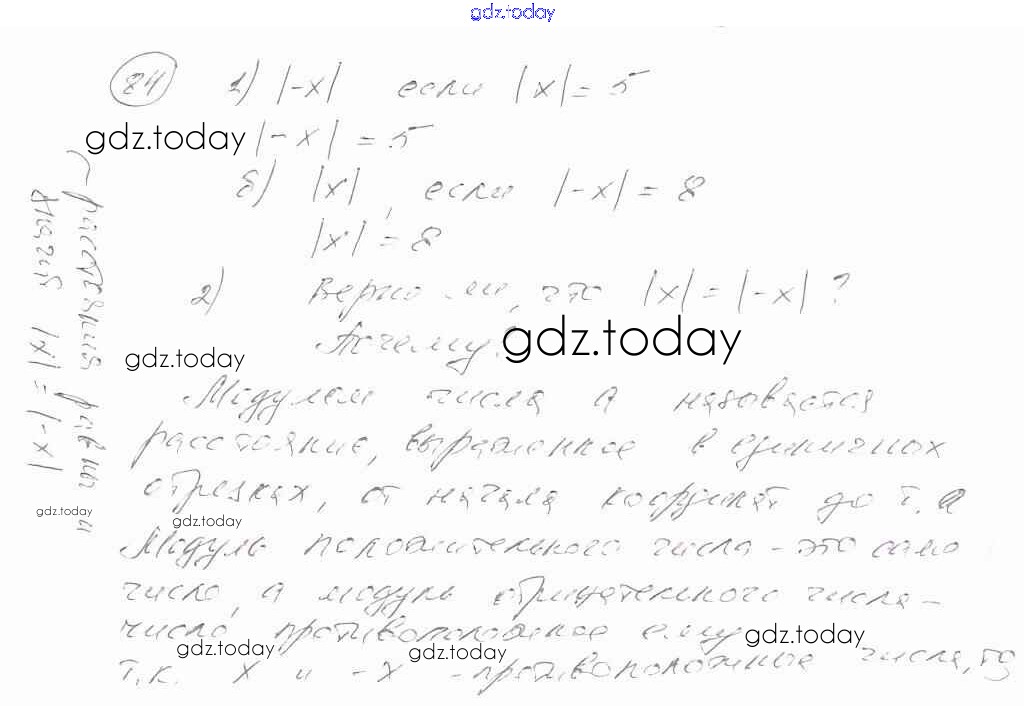 gdz.today
84 1) |-x| если |x| = 5
gdz.today |-x| = 5
б) |x|, если |-x| = 8
|x| = 8
2) Верно ли, что |x| = |-x| ?
Почему? gdz.today
gdz.today
Модулем числа а называется
расстояние, выраженное в единичных
отрезках, от начала координат до т. а
gdz.today gdz.today
Модуль положительного числа - это само
число, а модуль отрицательного числа -
число противоположное ему gdz.today
gdz.today gdz.today
т.к. x и -x - противоположные числа, то
расстояния равны и
значит |x| = |-x|